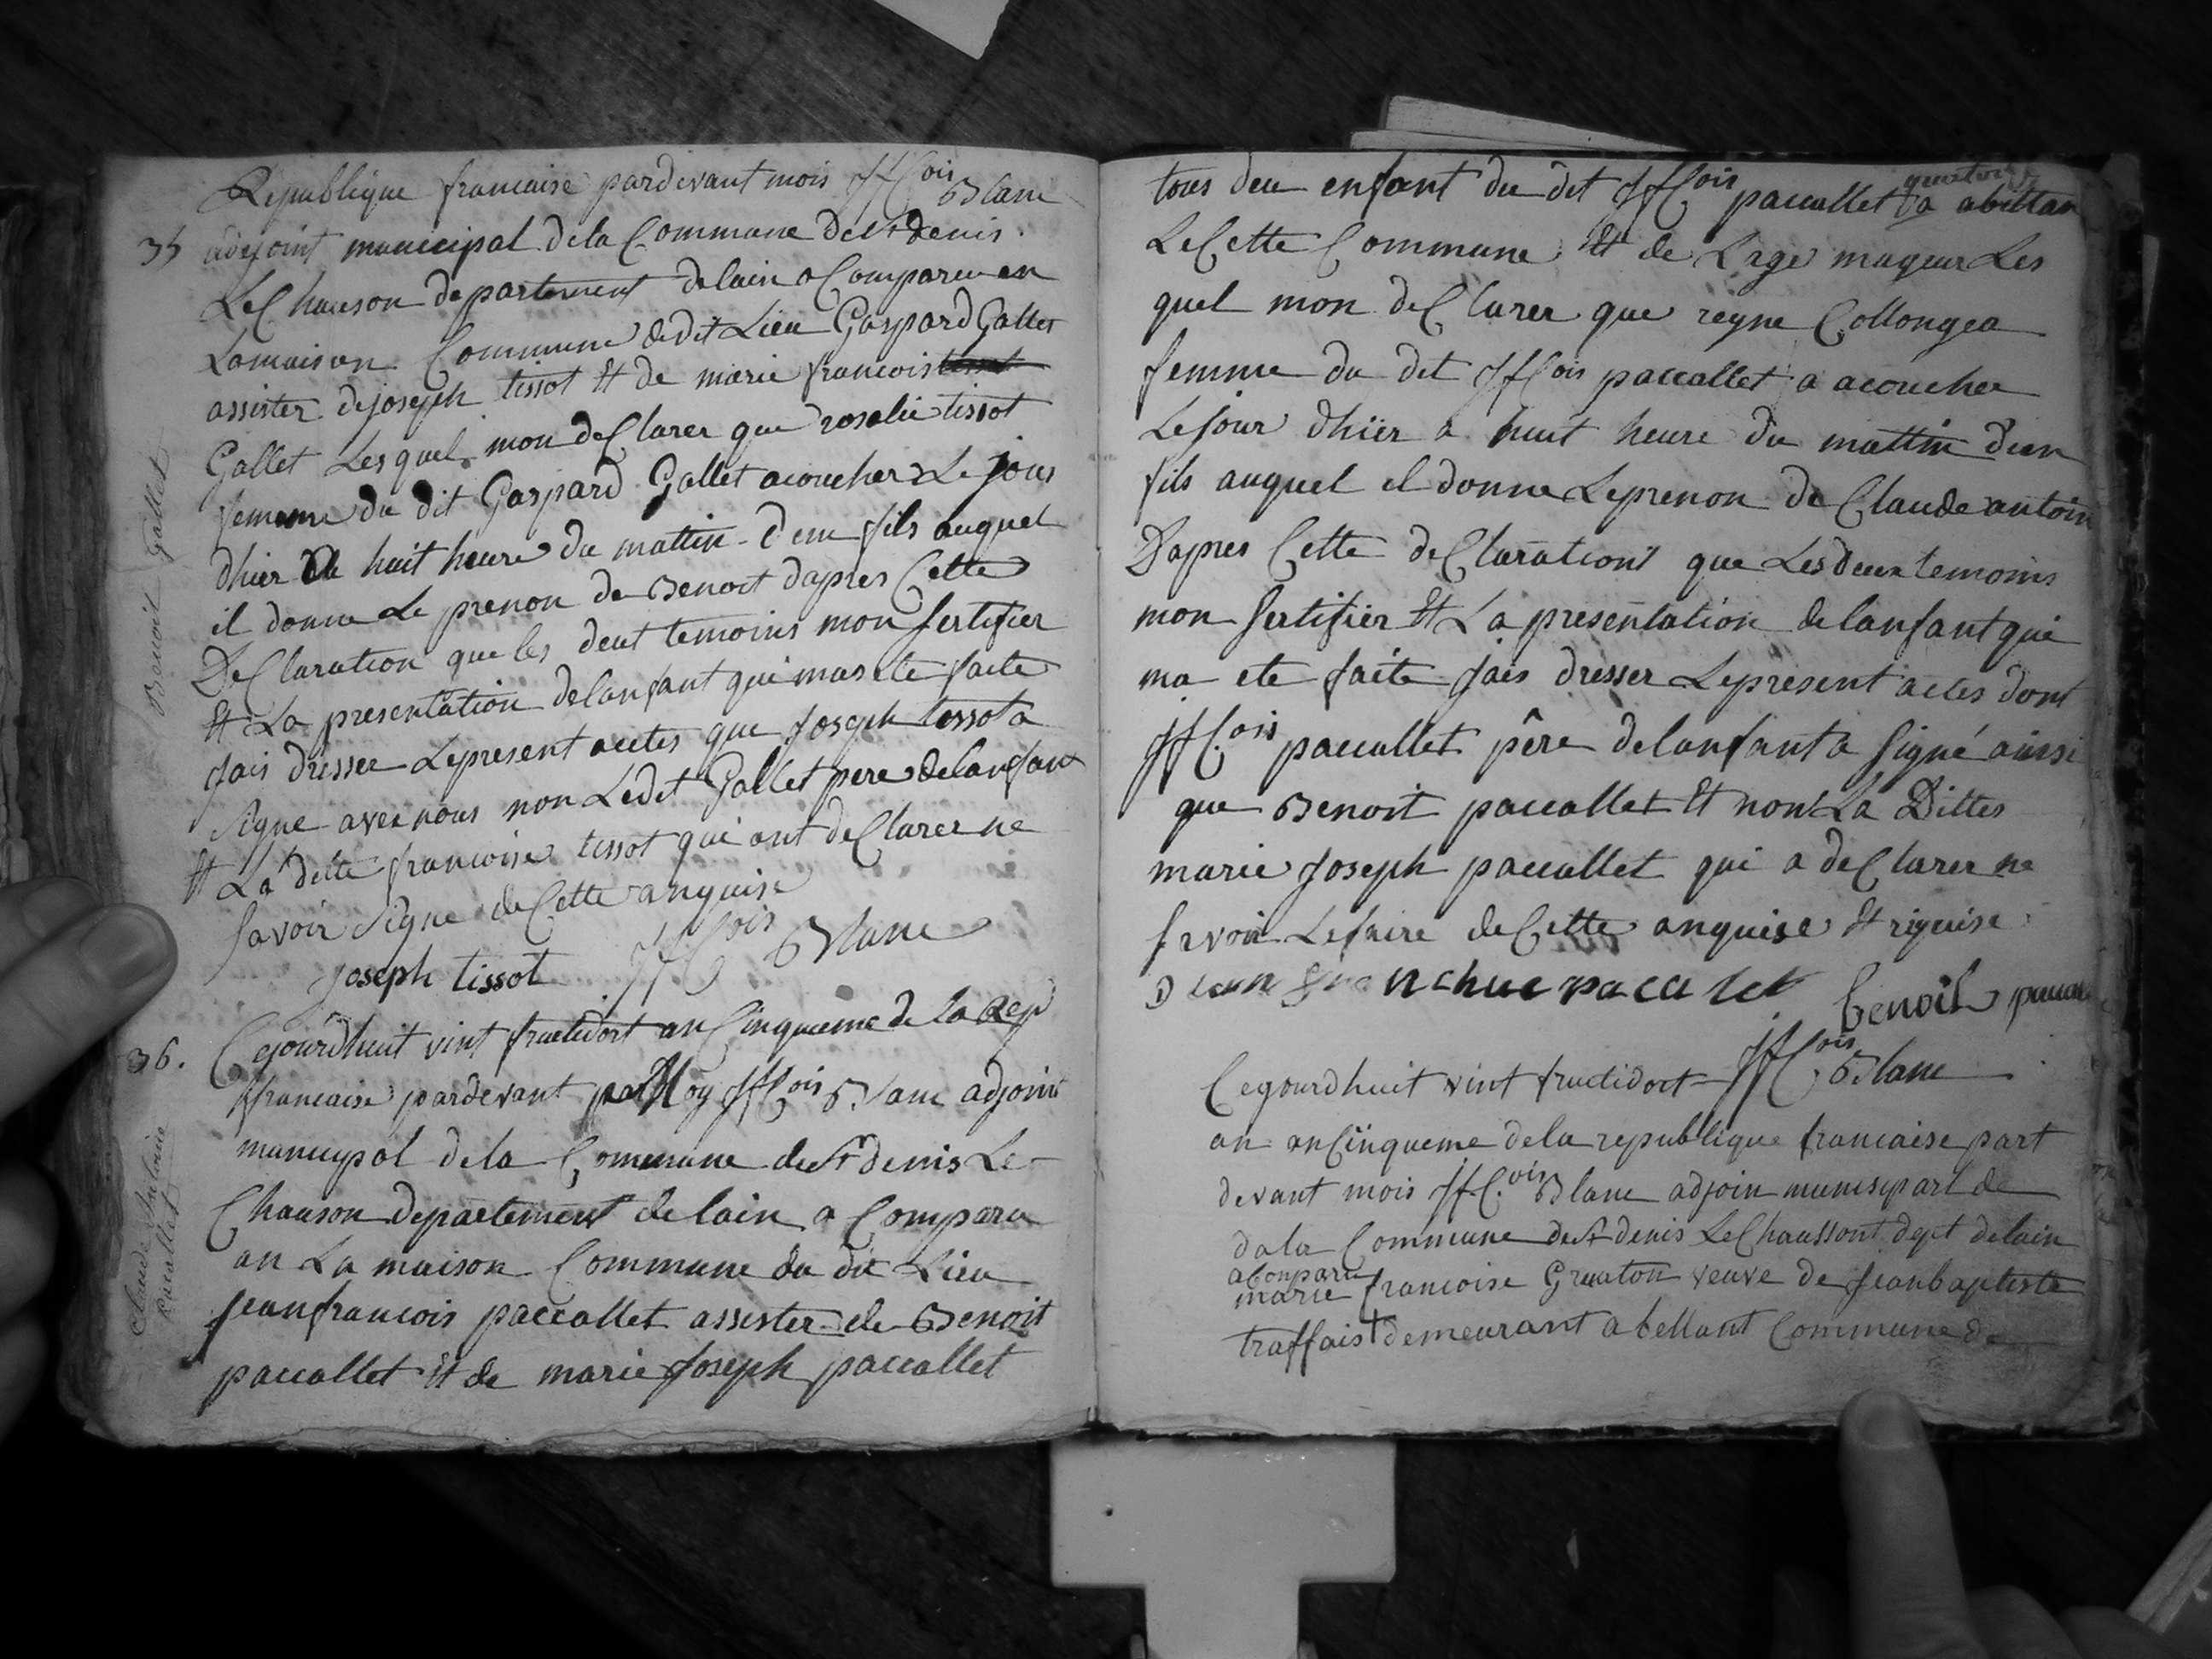 Republique francaise pardevant mois JfCois Blanc
35 adejoint municipal dela Commune de St denis
Le Chauson departement delain a Comparu en
Lamaison Commune dedit Lieu Gaspard Gallet
assister dejoseph tissot Et de marie francois
Gallet Lesquel mon deClarer que rosalie tissot
femme du dit Gaspard Gallet acoucher Le jous
dhier a huit heure du mattin deun fils auquel
il donne Le prenon de Benoct dapres Cette
DeClaration que les deut temoins mon Sertifier
Et La presentation delanfant qui mas ete faite
fais dresser Lepresent acctes que Joseph tissot a
Signe avec nous non Ledit Gallet pere delanfant
Et La ditte francoise tissot qui ont deClarer ne
Savoir Signe de Cette anquise
Joseph tissot JfCois Blanc
Benoit Gallet
36. Cejourdhuit vint fructidort an Cinqueme de la Rep
francaise pardevant moy JfCois Blanc adjoint
municipal dela Commune de St denis Le
Chauson departement delain a Comparu
an La maison Commune du dit Lieu
jeanfrancois paccallet assister de Benoit
paccallet Et de marie Joseph paccallet
Claude Antoine
Pacallet
tous deu enfant du dit JfCois paccallet a abittan
LeCette Commune Et de Lage mageur Les
quel mon deClarer que reyne Collongea
femme du dit JfCois paccallet a acoucher
Lejour dhiër a huit heure du mattin deun
fils auquel il donne Leprenon de Claude antoin
Dapres Cette deClaration que Lesdeux temoins
mon Sertifier Et La presentation delanfant qui
ma ete faite fais dresser Lepresent actes dont
JfC.ois paccallet père delanfant a Signé ainsi
que Benoit paccallet Et non La Dittes
marie Joseph paccallet qui a deClarer ne
Savoir Lefaire de Cette anquise Et riquise
pacalet benoit
JfCois Blanc
Cegourdhuit vint fructidort
an anCinqueme dela republique francaise part
devant mois JfC.ois Blanc adjoin munisipart de
dala Commune de St denis LeChaussont dept delain
aConparu
marie francoise Gruaton veuve de jeanbaptiste
traffais demeurant abellant Commune de